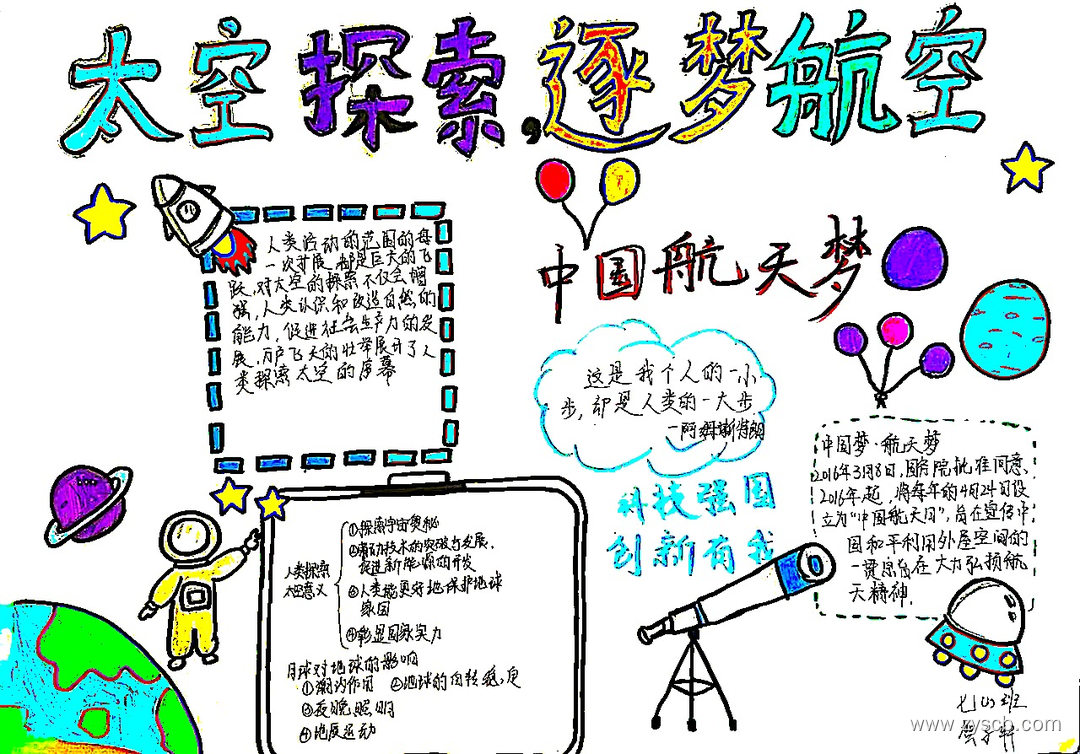 太空探索,逐梦航空
人类活动的范围的每
一次扩展,都是巨大的飞
跃,对太空的探索不仅会增
强,人类认识和改造自然的
能力,促进社会生产力的发
展,万户飞天的壮举展开了人
类探索太空的序幕
中国航天梦
这是我个人的一小
步,却是人类的一大步
-阿姆斯特朗
科技强国
创新有我
中国梦·航天梦
2016年3月8日,国务院批准同意,
2016年起,将每年的4月24日设
立为“中国航天日”,旨在宣传中
国和平利用外层空间的
一贯宗旨在大力弘扬航
天精神.
人类探索
太空意义
①探索宇宙奥秘
②带动技术的突破与发展,
促进新能源的开发
③人类能更好地保护地球
家园
④彰显国家实力
月球对地球的影响
①潮汐作用 ②地球的自转稳定
③夜晚照明
④地层运动
七(1)班
www.zyscb.com